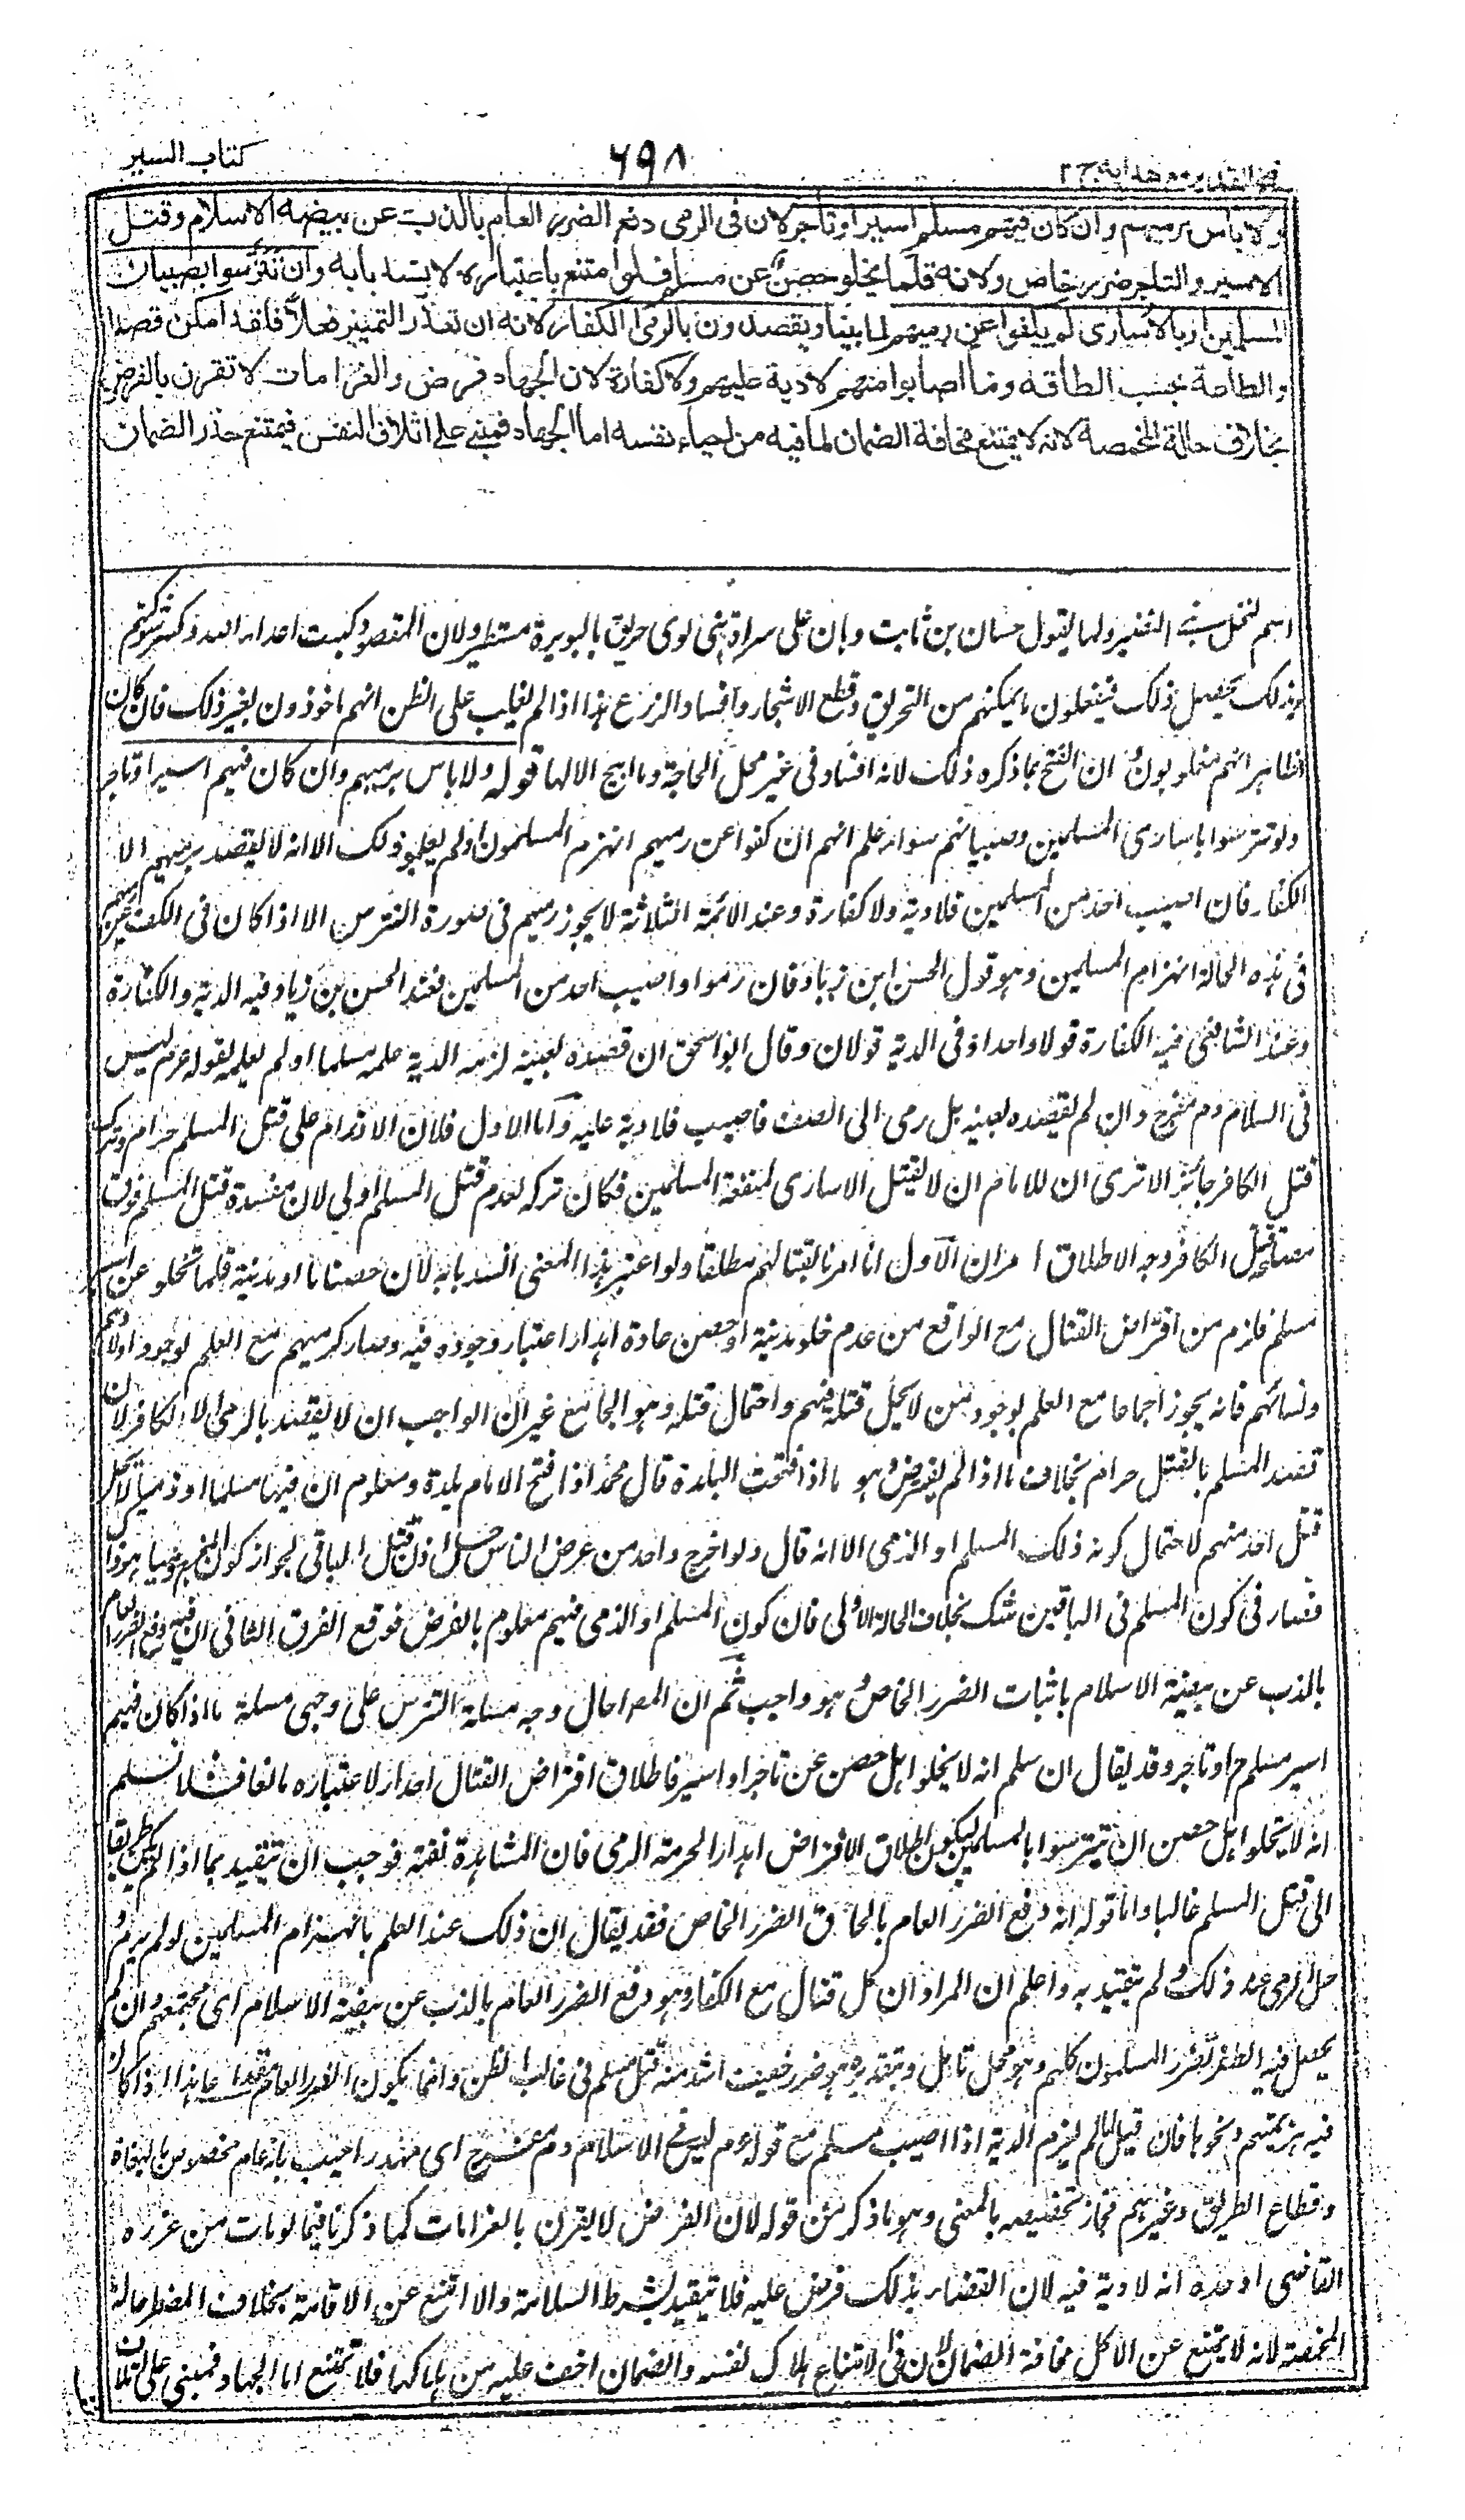 فتح القدير مع هداية ج ٢
٦٩٨
كتاب السير
ولا باس برميهم وان كان فيهم مسلم اسير او تاجر لان فى الرمى دفع الضرر العام بالذب عن بيضة الاسلام وقتل
الاسير والتاجر ضرر خاص ولانه قلما يخلو حصن عن مسلم فلو امتنع باعتباره لانسد بابه وان تترسوا بصبيان
المسلمين او بالاسارى لم يكفوا عن رميهم لما بينا ويقصدون بالرمى الكفار لانه ان تعذر التمييز فعلا فلقد امكن قصدا
والطاعة بحسب الطاقة وما اصابوا منهم لا دية عليهم ولا كفارة لان الجهاد فرض والغرامات لا تقرن بالفرض
بخلاف حالة المخمصة لانه لا يمتنع مخافة الضمان لما فيه من احياء نفسه اما الجهاد فمبنى على اتلاف النفس فيمتنع حذر الضمان
اسم لنخل بنى النضير ولها يقول حسان بن ثابت وهان على سراة بنى لوى حريق بالبويرة مستطير ولان المقصود كبت اعداء الله وكسر شوكتهم
وبذلك يحصل ذلك فيفعلون ما يمكنهم من التحريق وقطع الاشجار وافساد الزرع هذا اذا لم يغلب على الظن انهم ماخوذون بغير ذلك فان كان
الظاهر انهم مغلوبون وان الفتح باد كره ذلك لانه افساد فى غير محل الحاجة وما ابيح الا لها قوله ولا باس برميهم وان كان فيهم اسير او تاجر
ولو تترسوا باسارى المسلمين وصبيانهم سواء علم انهم ان كفوا عن رميهم انهزم المسلمون او لم يعلموا ذلك الا انه لا يقصد برميهم الا
الكفار فان اصيب احد من المسلمين فلا دية ولا كفارة وعند الائمة الثلاثة لا يجوز رميهم فى صورة التترس الا اذا كان فى الكف عن رميهم
فى هذه الحالة انهزام المسلمين وهو قول الحسن ابن زياد فان رموا واصيب احد من المسلمين فعند الحسن بن زياد فيه الدية والكفارة
وعند الشافعى فيه الكفارة قولا واحدا وفى الدية قولان وقال ابو اسحق ان قصده بعينه لزمه الدية علمه مسلما او لم يعلمه لقوله عم ليس
فى السلام دم مفرج وان لم يقصده بعينه بل رمى الى الصف فاصيب فلا دية عليه واما الاول فلان الاقدام على قتل المسلم حرام وترك
قتل الكافر جائز الا ترى ان للامام ان لا يقتل الاسارى لمنفعة المسلمين فكان تركه لعدم قتل المسلم اولى لان مفسدة قتل المسلم فوق
مصلحة قتل الكافر وجه الاطلاق امران الاول انا امرنا بقتالهم مطلقا ولو اعتبر هذا المعنى انسد بابه لان حصنا ما او مدينة قلما تخلو عن اسير
مسلم فلزم من افتراض القتال مع الواقع من عدم خلو مدينة او حصن عادة اهدار اعتبار وجوده فيه وصار كرميهم مع العلم لوجود اولادهم
ونسائهم فانه يجوز اجماعا مع العلم بوجود من لا يحل قتله فيهم واحتمال قتله وهو الجامع غير ان الواجب ان لا يقصد بالرمى الا الكافر لان
قصد المسلم بالقتل حرام بخلاف ما اذا لم يفرض وهو ما اذا فتحت البلدة قال محمد اذا فتح الامام بلدة ومعلوم ان فيها مسلما او ذميا لا يحل
قتل احد منهم لاحتمال كونه ذلك المسلم او الذمى الا انه قال ولو اخرج واحد من عرض الناس حل اذن قتل الباقى لجواز كون المخرج هو ذا
فصار فى كون المسلم فى الباقين شك بخلاف الحالة الاولى فان كون المسلم او الذمى فيهم معلوم بالفرض فوقع الفرق الثانى ان فيه دفع الضرر العام
بالذب عن بيضة الاسلام باثبات الضرر الخاص وهو واجب ثم ان المص احال وجه مسئلة التترس على وجهى مسئلة ما اذا كان فيهم
اسير مسلم او تاجر وقد يقال ان سلم انه لا يخلو اهل حصن عن تاجر او اسير فاطلاق افتراض القتال اهدار لاعتباره مانعا فلا نسلم
انه لا يخلو اهل حصن ان يتترسوا بالمسلمين ليكون اطلاق الافتراض اهدار لحرمة الرمى فان المشاهدة نفته فوجب ان يتقيد بما اذا لم يكن طريقا
الى قتل المسلم غالبا واما قوله انه دفع الضرر العام بالحاق الضرر الخاص فقد يقال ان ذلك عند العلم بانهزام المسلمين لو لم يرم و
حل الرمى عند ذلك ولم يتقيد به واعلم ان المراد ان كل قتال مع الكفار وهو دفع الضرر العام بالذب عن بيضة الاسلام اى مجتمعهم وان لم
يحصل فيه الظفر تضرر المسلمون كلهم وهو محل تامل وبتقديره هو ضرر خفيف اشد منه قتل مسلم فى غالب الظن وانما يكون الضرر العام مقدما هذا اذا كان
فيه هزيمتهم ونحوها فان قيل لم لم يلزم الدية اذا اصيب مسلم مع قوله عم ليس فى الاسلام دم مفرج اى مهدر اجيب بانه عام مخصوص بالبغاة
وقطاع الطريق وغيرهم فجاز تخصيصه بالمعنى وهو ما ذكر من قوله لان الفرض لا يقرن بالغرامات كما ذكرنا فيما لو مات من عزره
القاضى او حده انه لا دية فيه لان القضاء بذلك فرض عليه فلا يتقيد بشرط السلامة والا امتنع عن الاقامة بخلاف المضطر حالة
المخمصة لانه لا يمتنع عن الاكل مخافة الضمان لان فى الامتناع هلاك نفسه والضمان اخف عليه من هلاكها فلا يمتنع اما الجهاد فمبنى على اتلاف